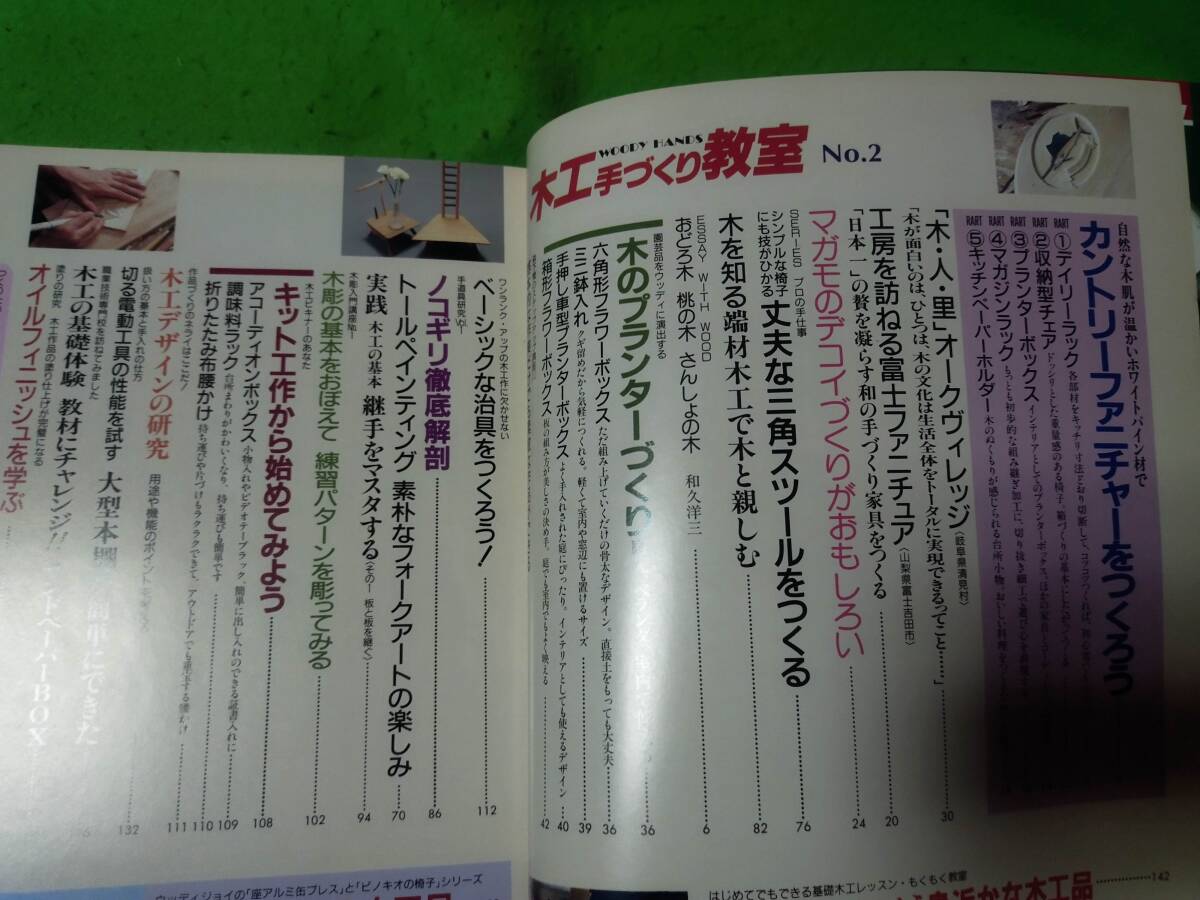 WOODY HANDS
木工手づくり教室 No.2
自然な木肌が温かいホワイトパイン材で
カントリーファニチャーをつくろう
RART ①デイリーラック 各部材をキッチリ寸法どおり切断して、コツコツつくれば、
RART ②収納型チェア ドッシリとした重量感のある椅子。箱づくりの基本にしたがって
RART ③プランターボックス インテリアとしてのプランターボックス。ほかの家具
RART ④マガジンラック もっとも初歩的な組み継ぎ加工に、切り抜き細工で遊び心を
RART ⑤キッチンペーパーホルダー 木のぬくもりが感じられる台所小物。おいしい料理を
「木・人・里」オークヴィレッジ〈岐阜県清見村〉
「木が面白いのは、ひとつは、木の文化は生活全体をトータルに実現できるってこと……」 30
工房を訪ねる富士ファニチュア〈山梨県富士吉田市〉
「日本一」の贅を凝らす和の手づくり家具をつくる 20
マガモのデコイづくりがおもしろい 24
SERIES プロの手仕事
シンプルな椅子にも技がひかる 丈夫な三角スツールをつくる 76
木を知る端材木工で木と親しむ 82
ESSAY WITH WOOD
おどろ木 桃の木 さんしょの木 和久洋三 6
園芸品をウッディに演出する
木のプランターづくり 36
六角形フラワーボックス ただ組み上げていくだけの骨太なデザイン。直接土をもっても大丈夫 36
ミニ鉢入れ クギ留めだから気軽につくれる。軽くて室内や窓辺にも置けるサイズ 39
手押し車型プランターボックス よく手入れされた庭にぴったり。インテリアとしても使えるデザイン 40
箱形フラワーボックス 板の組み方が美しさの決め手。庭でも室内でもよく映える 42
はじめてでもできる基礎木工レッスン・もくもく教室
身近かな木工品 142
ワンランク・アップの木工作に欠かせない
ベーシックな治具をつくろう！ 112
手道具研究 Vol.1
ノコギリ徹底解剖 86
トールペインティング 素朴なフォークアートの楽しみ 70
木彫入門講座 No.1
実践 木工の基本 継手をマスタする〈その一 板と板を継ぐ〉 94
木彫の基本をおぼえて 練習パターンを彫ってみる 102
木工ビギナーのあなた
キット工作から始めてみよう 108
アコーディオンボックス 小物入れやビデオテープラック、簡単に出し入れのできる証書入れに 109
調味料ラック 台所まわりがかわいくなり、持ち運びも簡単です 110
折りたたみ布腰かけ 持ち運びや片づけもラクラクできて、アウトドアでも重宝する腰かけ 111
作品づくりのネライはここだ！
木工デザインの研究 用途や機能のポイント
扱い方の基本と手入れの仕方
切る電動工具の性能を試す 132
職業技術専門校を訪ねてみました
木工の基礎体験 教材にチャレンジ！ 大型本棚 簡単にできた
塗りの研究 木工作品の塗り仕上げが完璧になる
オイルフィニッシュを学ぶ
ペーパーBOX
ウッディジョイの「座アルミ缶プレス」と「ピノキオの椅子」シリーズ